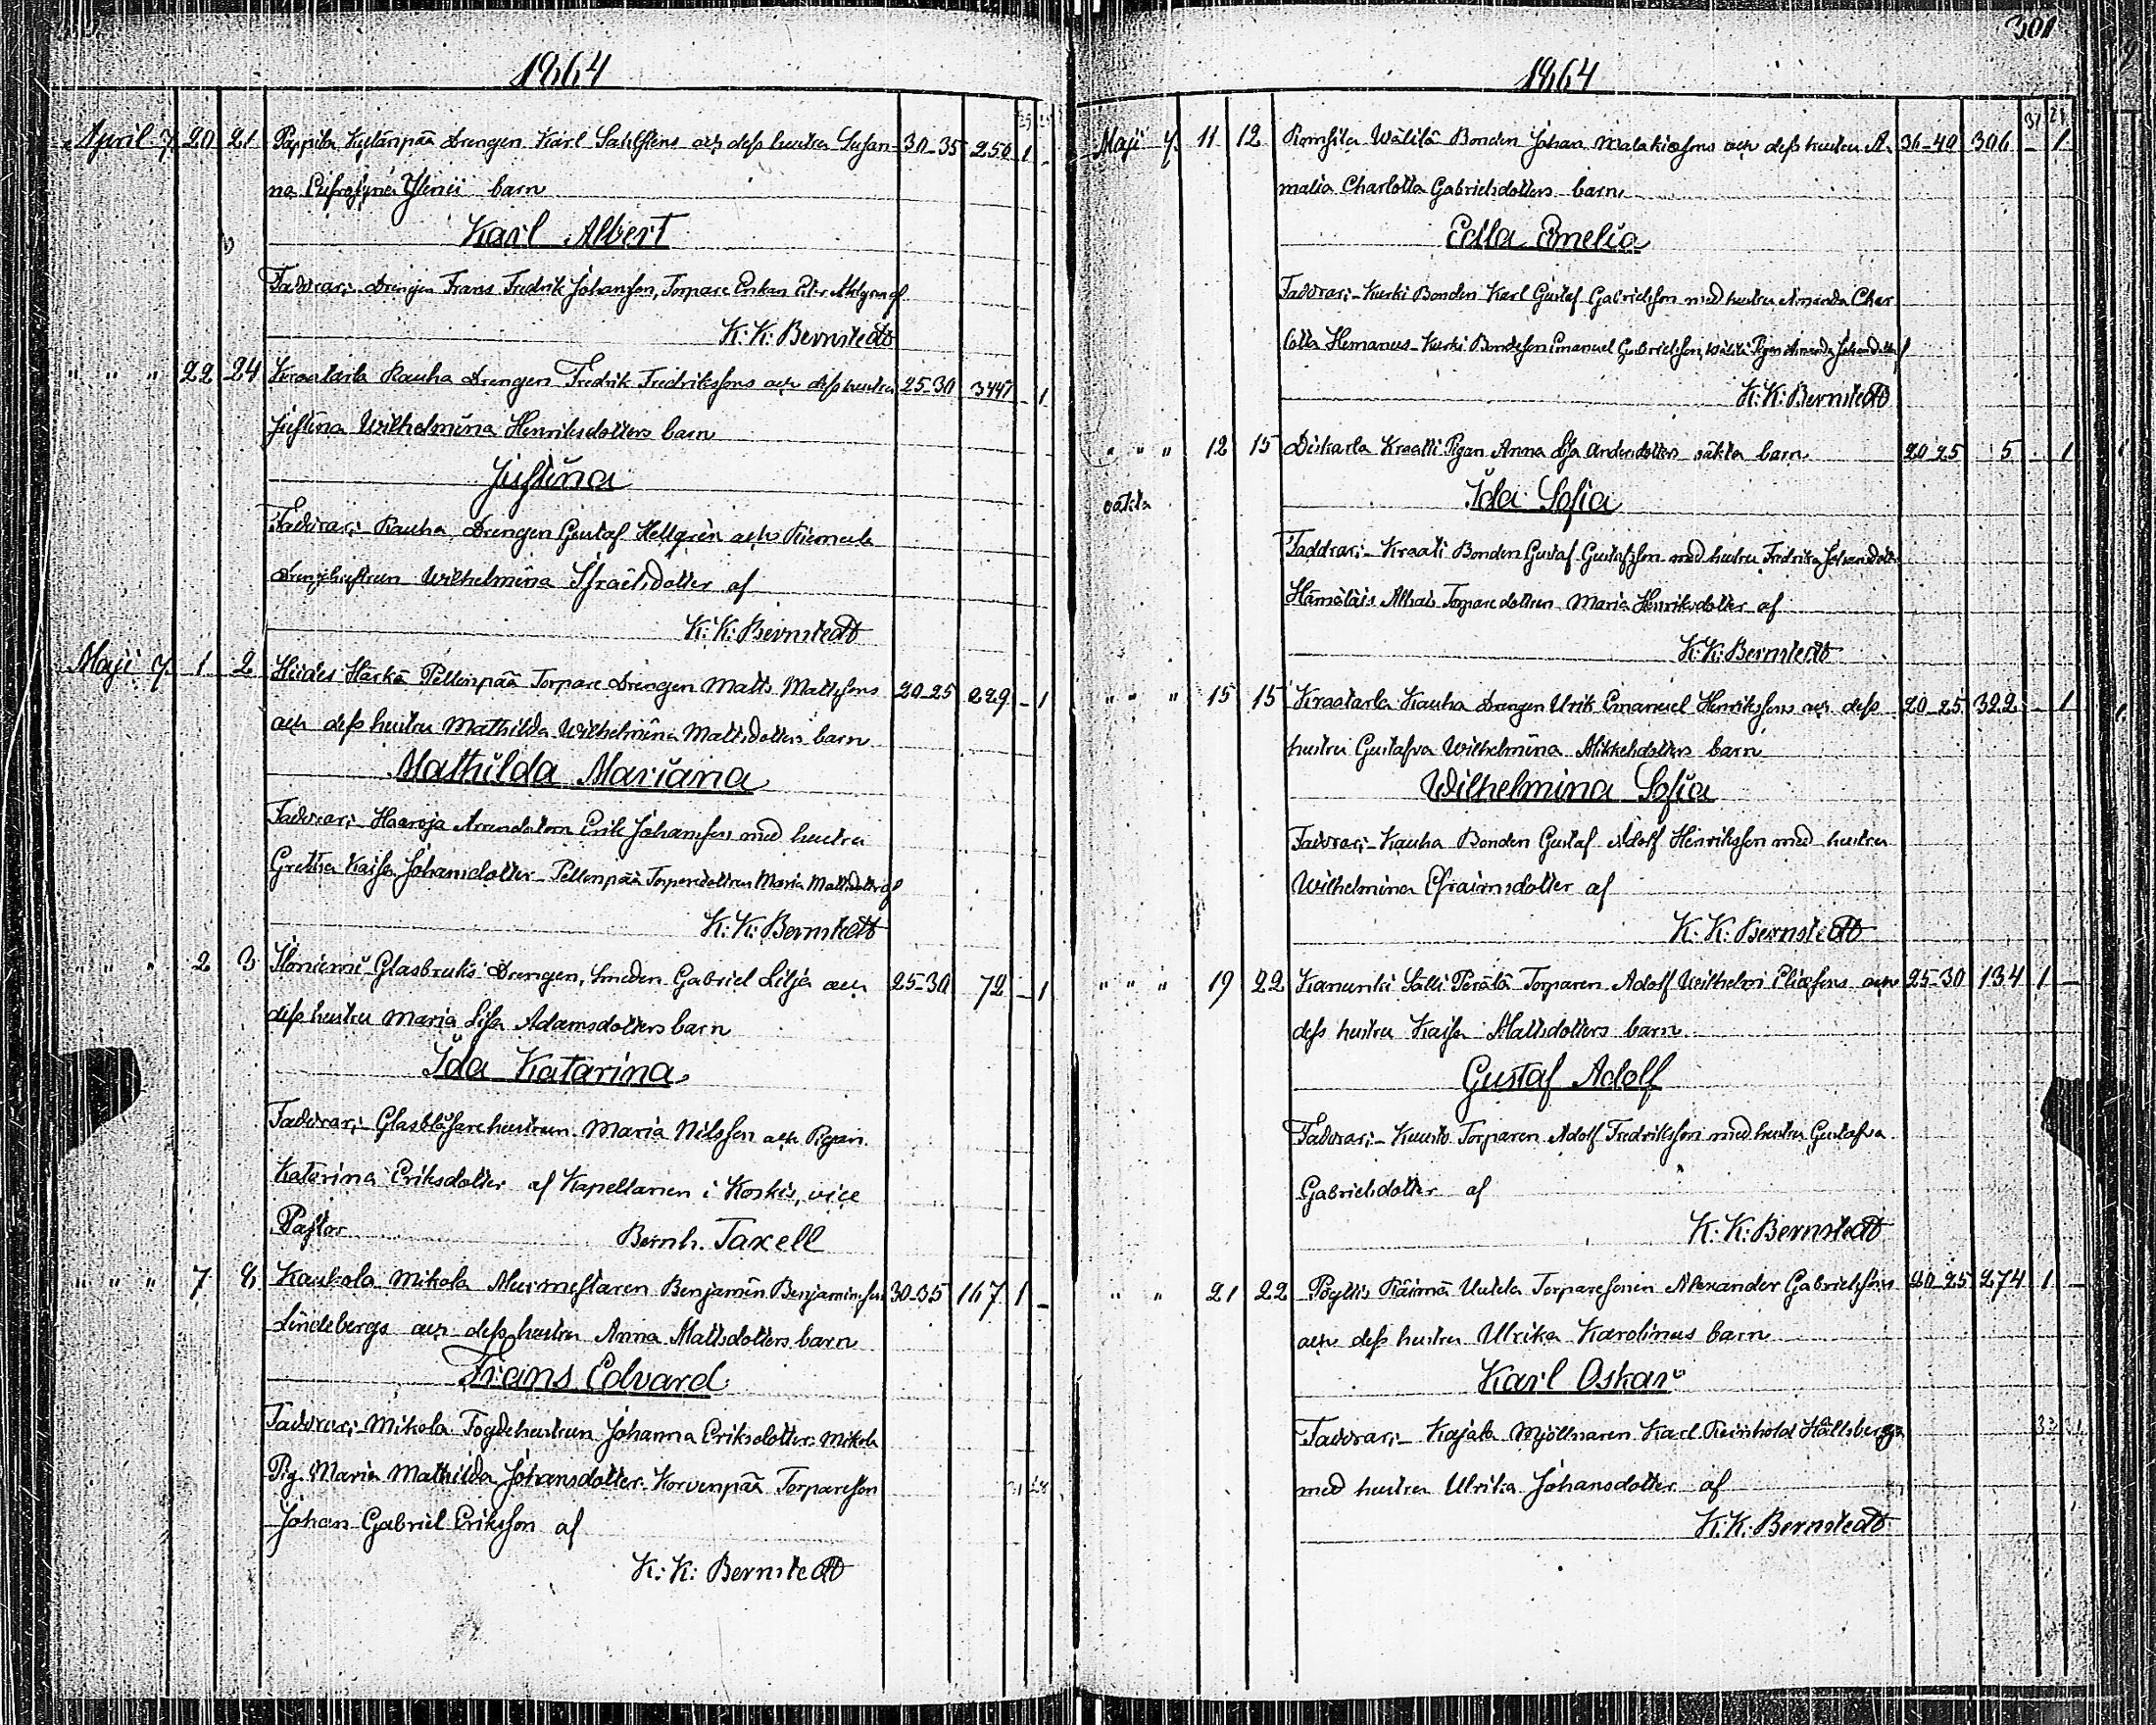 1864
April 7 20 21 Pappila Kylänpää Drengen Karl Sahlstens och dess hustru Susan- 30-35 250 1 -
na Eufrosyne Ylenii barn
Karl Albert
Faddrar;- Drengen Frans Fredrik Johansson, Torpare Enkan af
K: K: Bernstedt
" " " 22 24 Kraatarla Kauha Drengen Fredrik Fredrikssons och dess hustru 25-30 - 1
Justina Wilhelmina Henriksdotters barn
Justina
Faddrar;- Kauha Drengen Gustaf Hellgrén och
Drengehustrun Wilhelmina Israelsdotter af
K: K: Bernstedt
Maji 7. 1 2 Härkä Pellinpää Torpare Drengen Matts Mattssons 20-25 229 - 1
och dess hustru Mathilda Wilhelmina Mattsdotters barn
Mathilda Mariana
Faddrar;- Haaroja Arrendatorn Erik Johansson med hustru
Gretha Kaisa Johansdotter - Pellinpää Torparedottren Maria Mattsdotter af
K: K: Bernstedt
" " " 2 3 Glasbruks Drengen, Smeden Gabriel Lilja och 25-30 72 - 1
dess hustru Maria Lisa Adamsdotters barn
Ida Katarina
Faddrar;- Glasblåsarehustrun Maria Nilsson och Pigan
Katarina Eriksdotter af Kapellanen i Koskis, vice
Pastor Bernh. Taxell
" " " 7 8 Kaukola Mikola Murmestaren Benjamin Benjaminsson 30-35 167 1 -
Lindebergs och dess hustru Anna Mattsdotters barn
Frans Edvard
Faddrar;- Mikola Fogdehustrun Johanna Eriksdotter. Mikola
Pig. Maria Mathilda Johansdotter. Korvenpää Torpareson
Johan Gabriel Eriksson af
K: K: Bernstedt
301
1864
Maji 7. 11 12 Wälilä Bonden Johan Malakiassons och dess hustru A- 36-40 306 - 1
malia Charlotta Gabrielsdotters barn
Edla Emelia
Faddrar;- Kurki Bonden Karl Gustaf Gabrielsson med hustru Amanda Char
lotta Hemanus - Kurki Bondeson Emanuel Gabrielsson, Wälilä Pigan Amanda Johansdotter af
K: K: Bernstedt
" " " 12 15 Kraatti Pigan Anna Lisa Andersdotters oäkta barn 20-25 5 - 1
oäkta
Ida Sofia
Faddrar;- Kraatti Bonden Gustaf Gustafsson med hustru Fredrika Johansdotter
Torparedottren Maria Henriksdotter af
K: K: Bernstedt
" " " 15 15 Kraatarla Kauha Drengen Urik Emanuel Henrikssons och dess 20-25 322 - 1
hustru Gustafva Wilhelmina Mikkelsdotters barn
Wilhelmina Sofia
Faddrar;- Kauha Bonden Gustaf Adolf Henriksson med hustru
Wilhelmina Efraimsdotter af
K. K: Bernstedt
" " " 19 22 Kanunki Sälli Perälä Torparen Adolf Wilhelm Eliassons och 25-30 134 1 -
dess hustru Kaisa Mattsdotters barn
Gustaf Adolf
Faddrar;- Torparen Adolf Fredriksson med hustru Gustafva
Gabrielsdotter af
K: K: Bernstedt
" " 21 22 Pöytis Räimä Torparesonen Alexander Gabrielssons 20-25 274 1 -
och dess hustru Ulrika Karolinas barn
Karl Oskar
Faddrar;- Kajala Mjölnaren Karl Reinhold Hällsberg
med hustru Ulrika Johansdotter af
K: K: Bernstedt